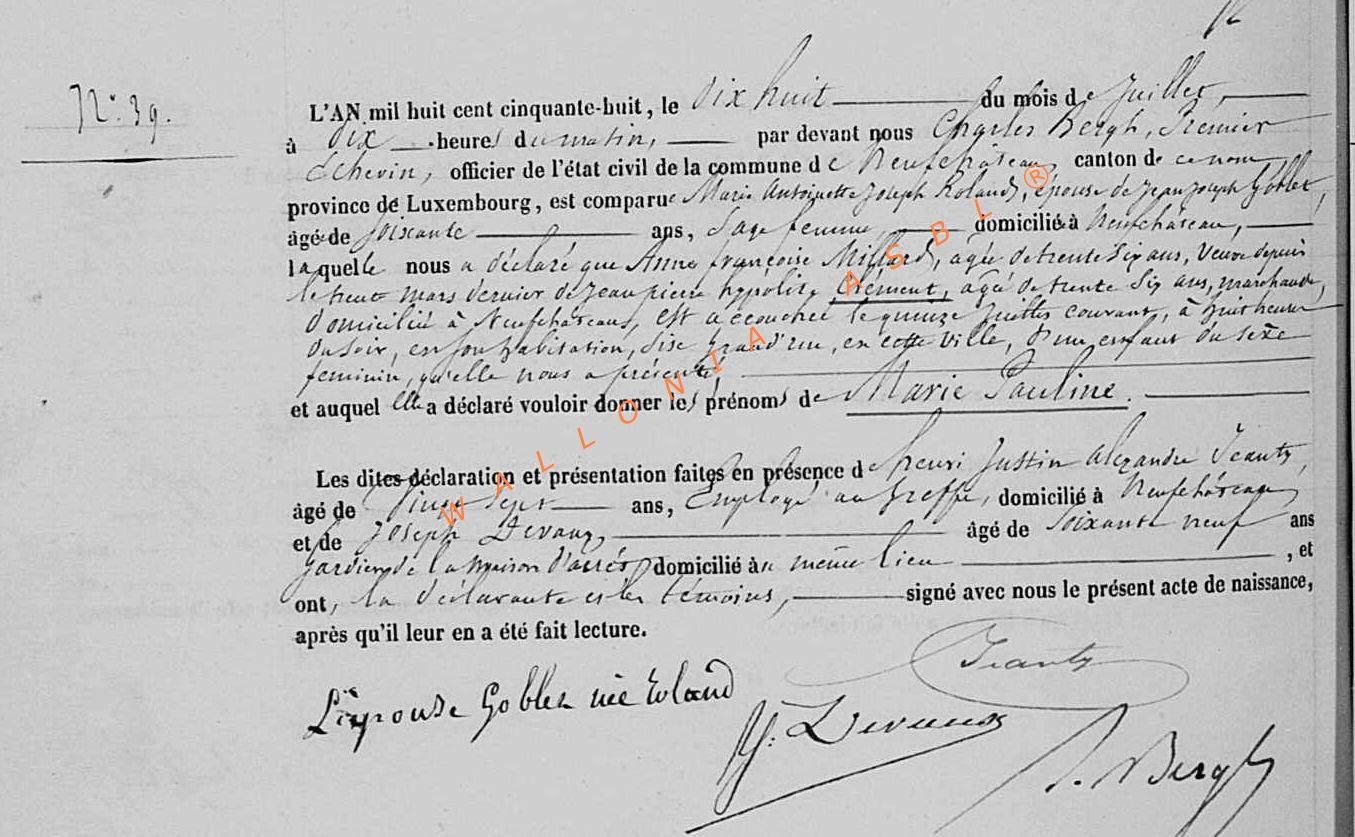 N° 39.
L'AN mil huit cent cinquante-huit, le dix huit du mois de Juillet,
à dix heures du matin, par devant nous Charles Bergh, Premier
Echevin, officier de l'état civil de la commune de Neufchâteau, canton de ce nom,
province de Luxembourg, est comparue Marie Antoinette Joseph Roland, épouse de Jean Joseph Goblet,
âgée de soixante ans, Sage femme, domiciliée à Neufchâteau,
laquelle nous a déclaré que Anne françoise Millard, agée de trente six ans, Veuve depuis
le trente mars dernier de Jean pierre hypolite Clement, agée de trente six ans, marchande,
domiciliée à Neufchâteau, est accouchée le quinze Juillet courant, à huit heures
du soir, en son habitation, sise Grand'rue, en cette ville, d'un enfant du sexe
feminin, qu'elle nous a présenté,
et auquel elle a déclaré vouloir donner les prénoms de Marie Pauline.
Les dites déclaration et présentation faites en présence de henri Justin Alexandre Jeanty,
âgé de Vingt sept ans, Employé au Greffe, domicilié à Neufchâteau,
et de Joseph Devaux, âgé de Soixante neuf ans
gardien de la maison d'arrêt, domicilié au même lieu, et
ont, la déclarante et les témoins, signé avec nous le présent acte de naissance,
après qu'il leur en a été fait lecture.
L'épouse Goblet née Roland
Jeanty
Devaux
Bergh
WALLONIA ASBL ®